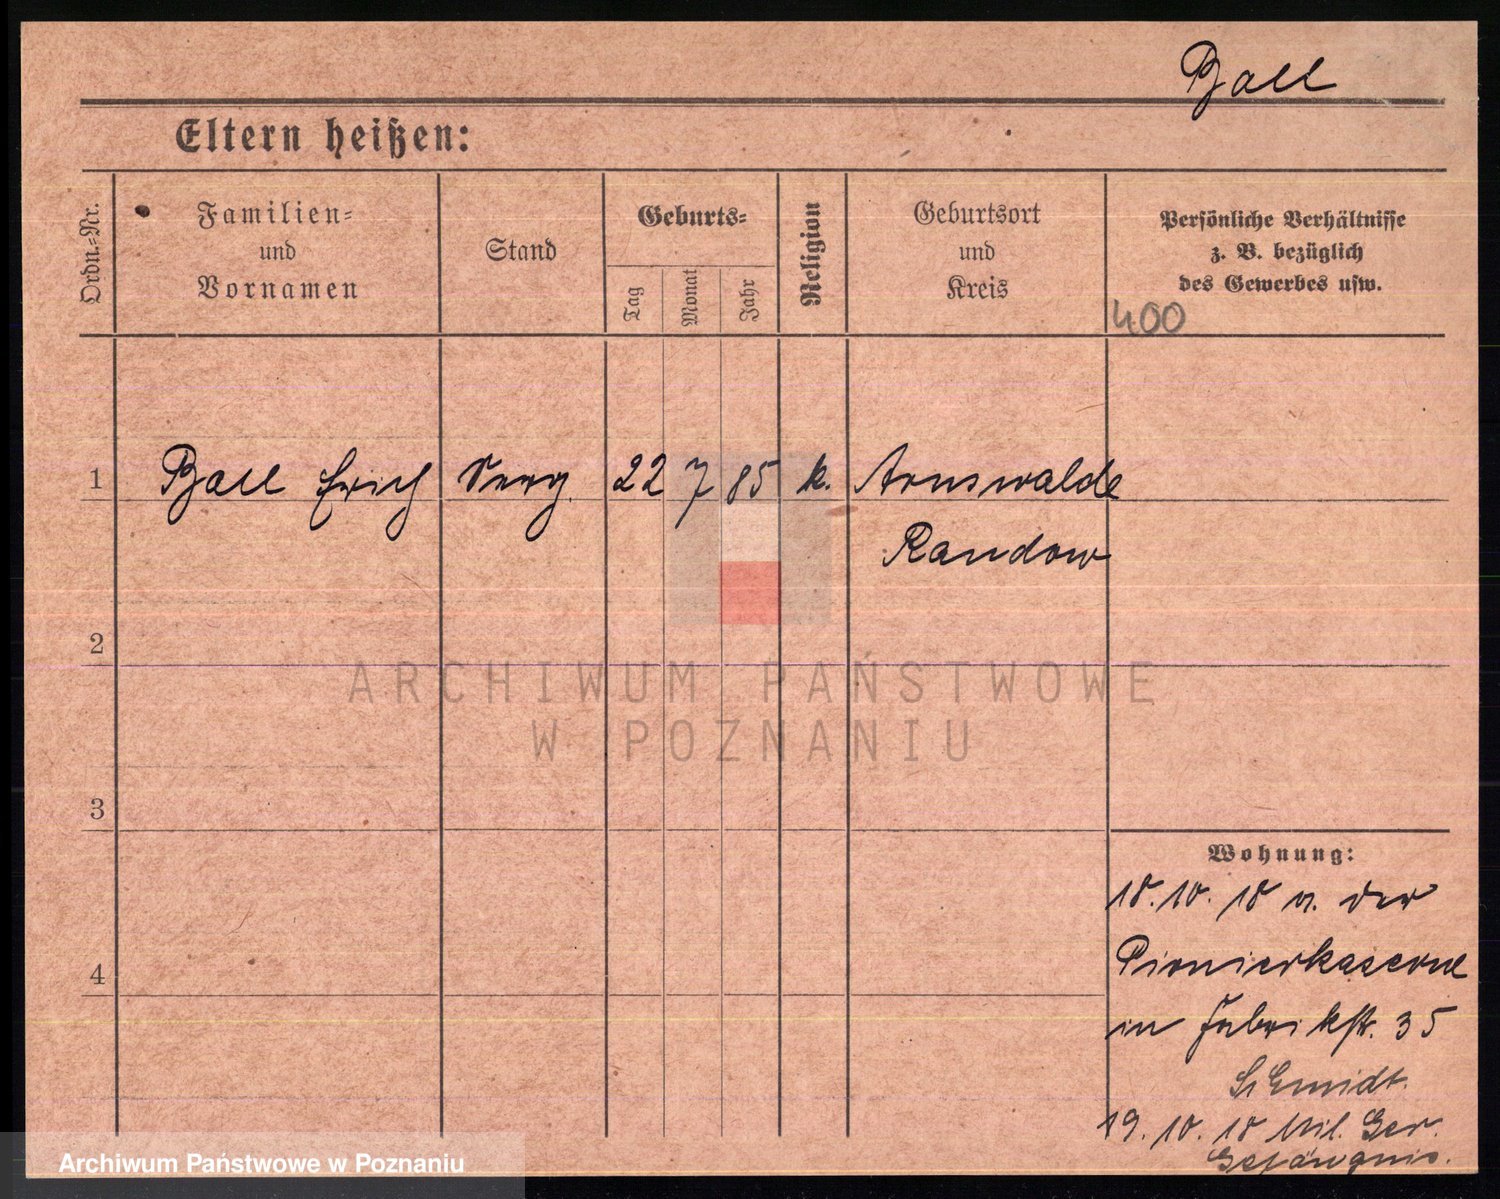 Ball
Eltern heißen:
Ordn.=Nr.
Familien=
und
Vornamen
Stand
Geburts=
Tag
Monat
Jahr
Religion
Geburtsort
und
Kreis
Persönliche Verhältnisse
z. B. bezüglich
des Gewerbes usw.
400
1
Ball Erich
22 7 85
k.
Arnswalde
Randow
2
3
4
Wohnung:
18.10.18 v. der
Pionierkaserne
in Fabrikstr. 35
Schmidt.
19.10.18 Mil. Ger.
Gefängnis.
ARCHIWUM PAŃSTWOWE
W POZNANIU
Archiwum Państwowe w Poznaniu